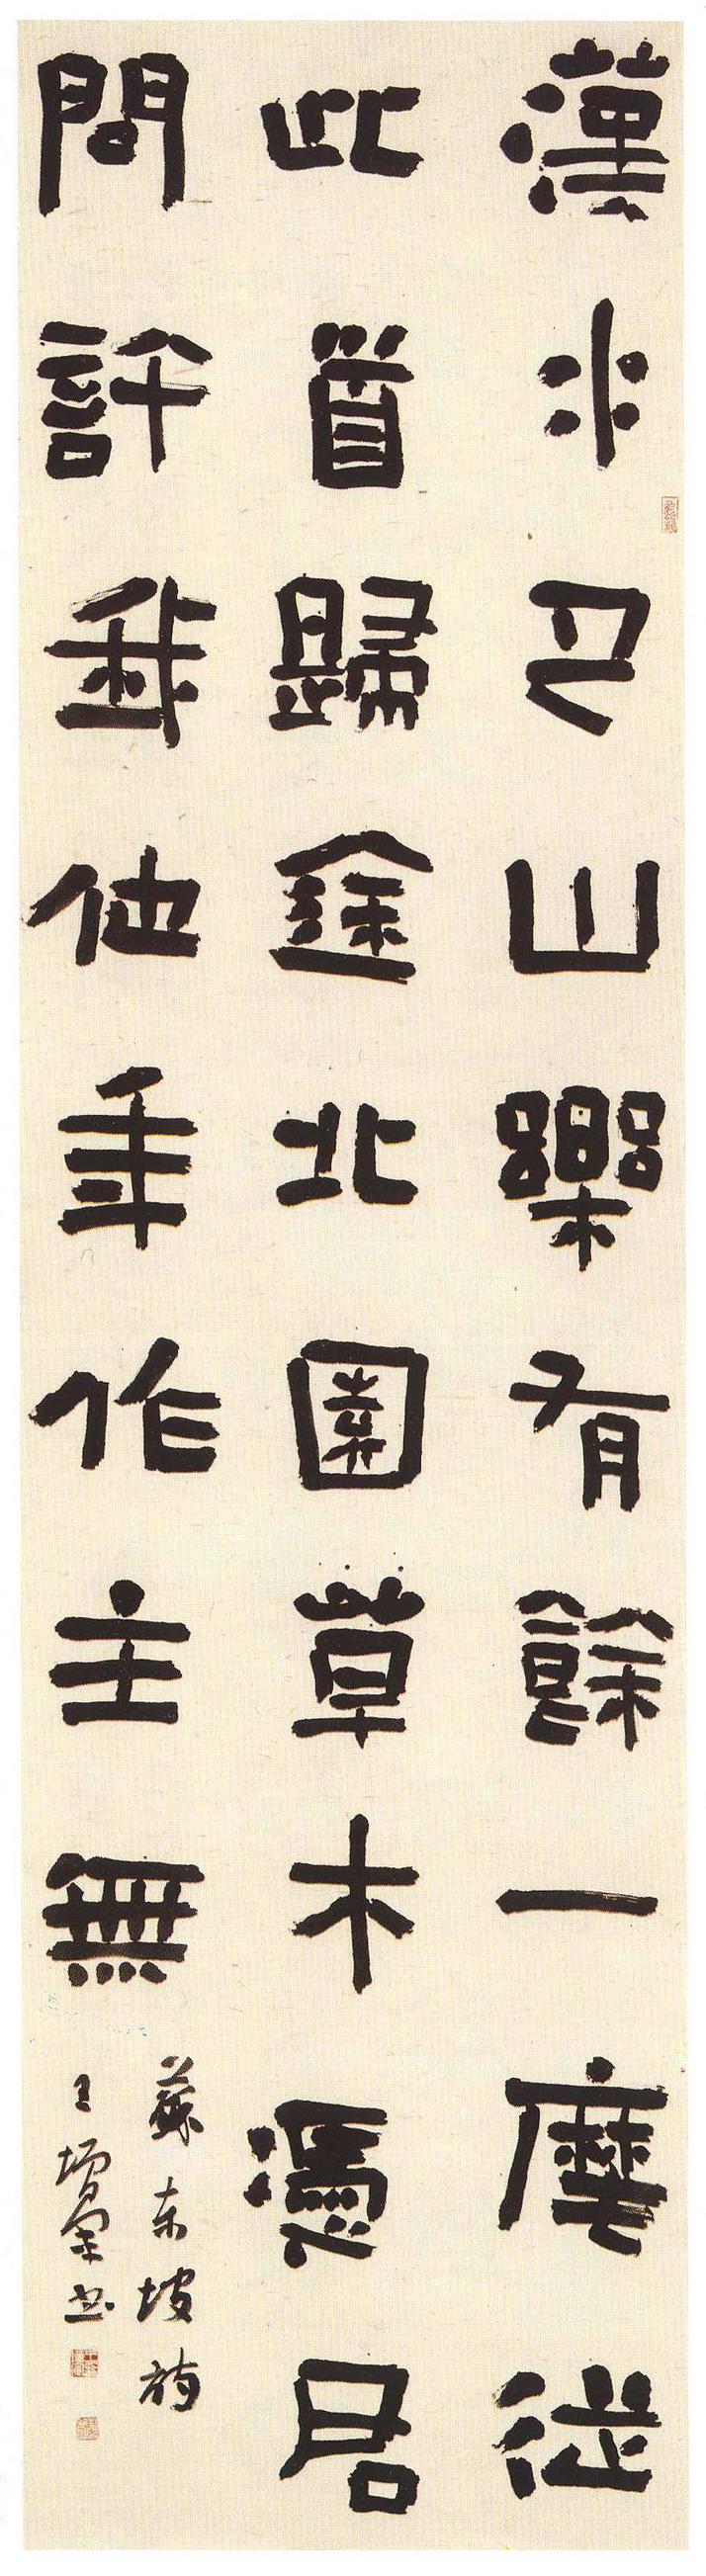 漢水巴山樂有餘一麾從
此首歸途北園草木憑君
問許我他年作主無
蘇東坡詩
王增軍书